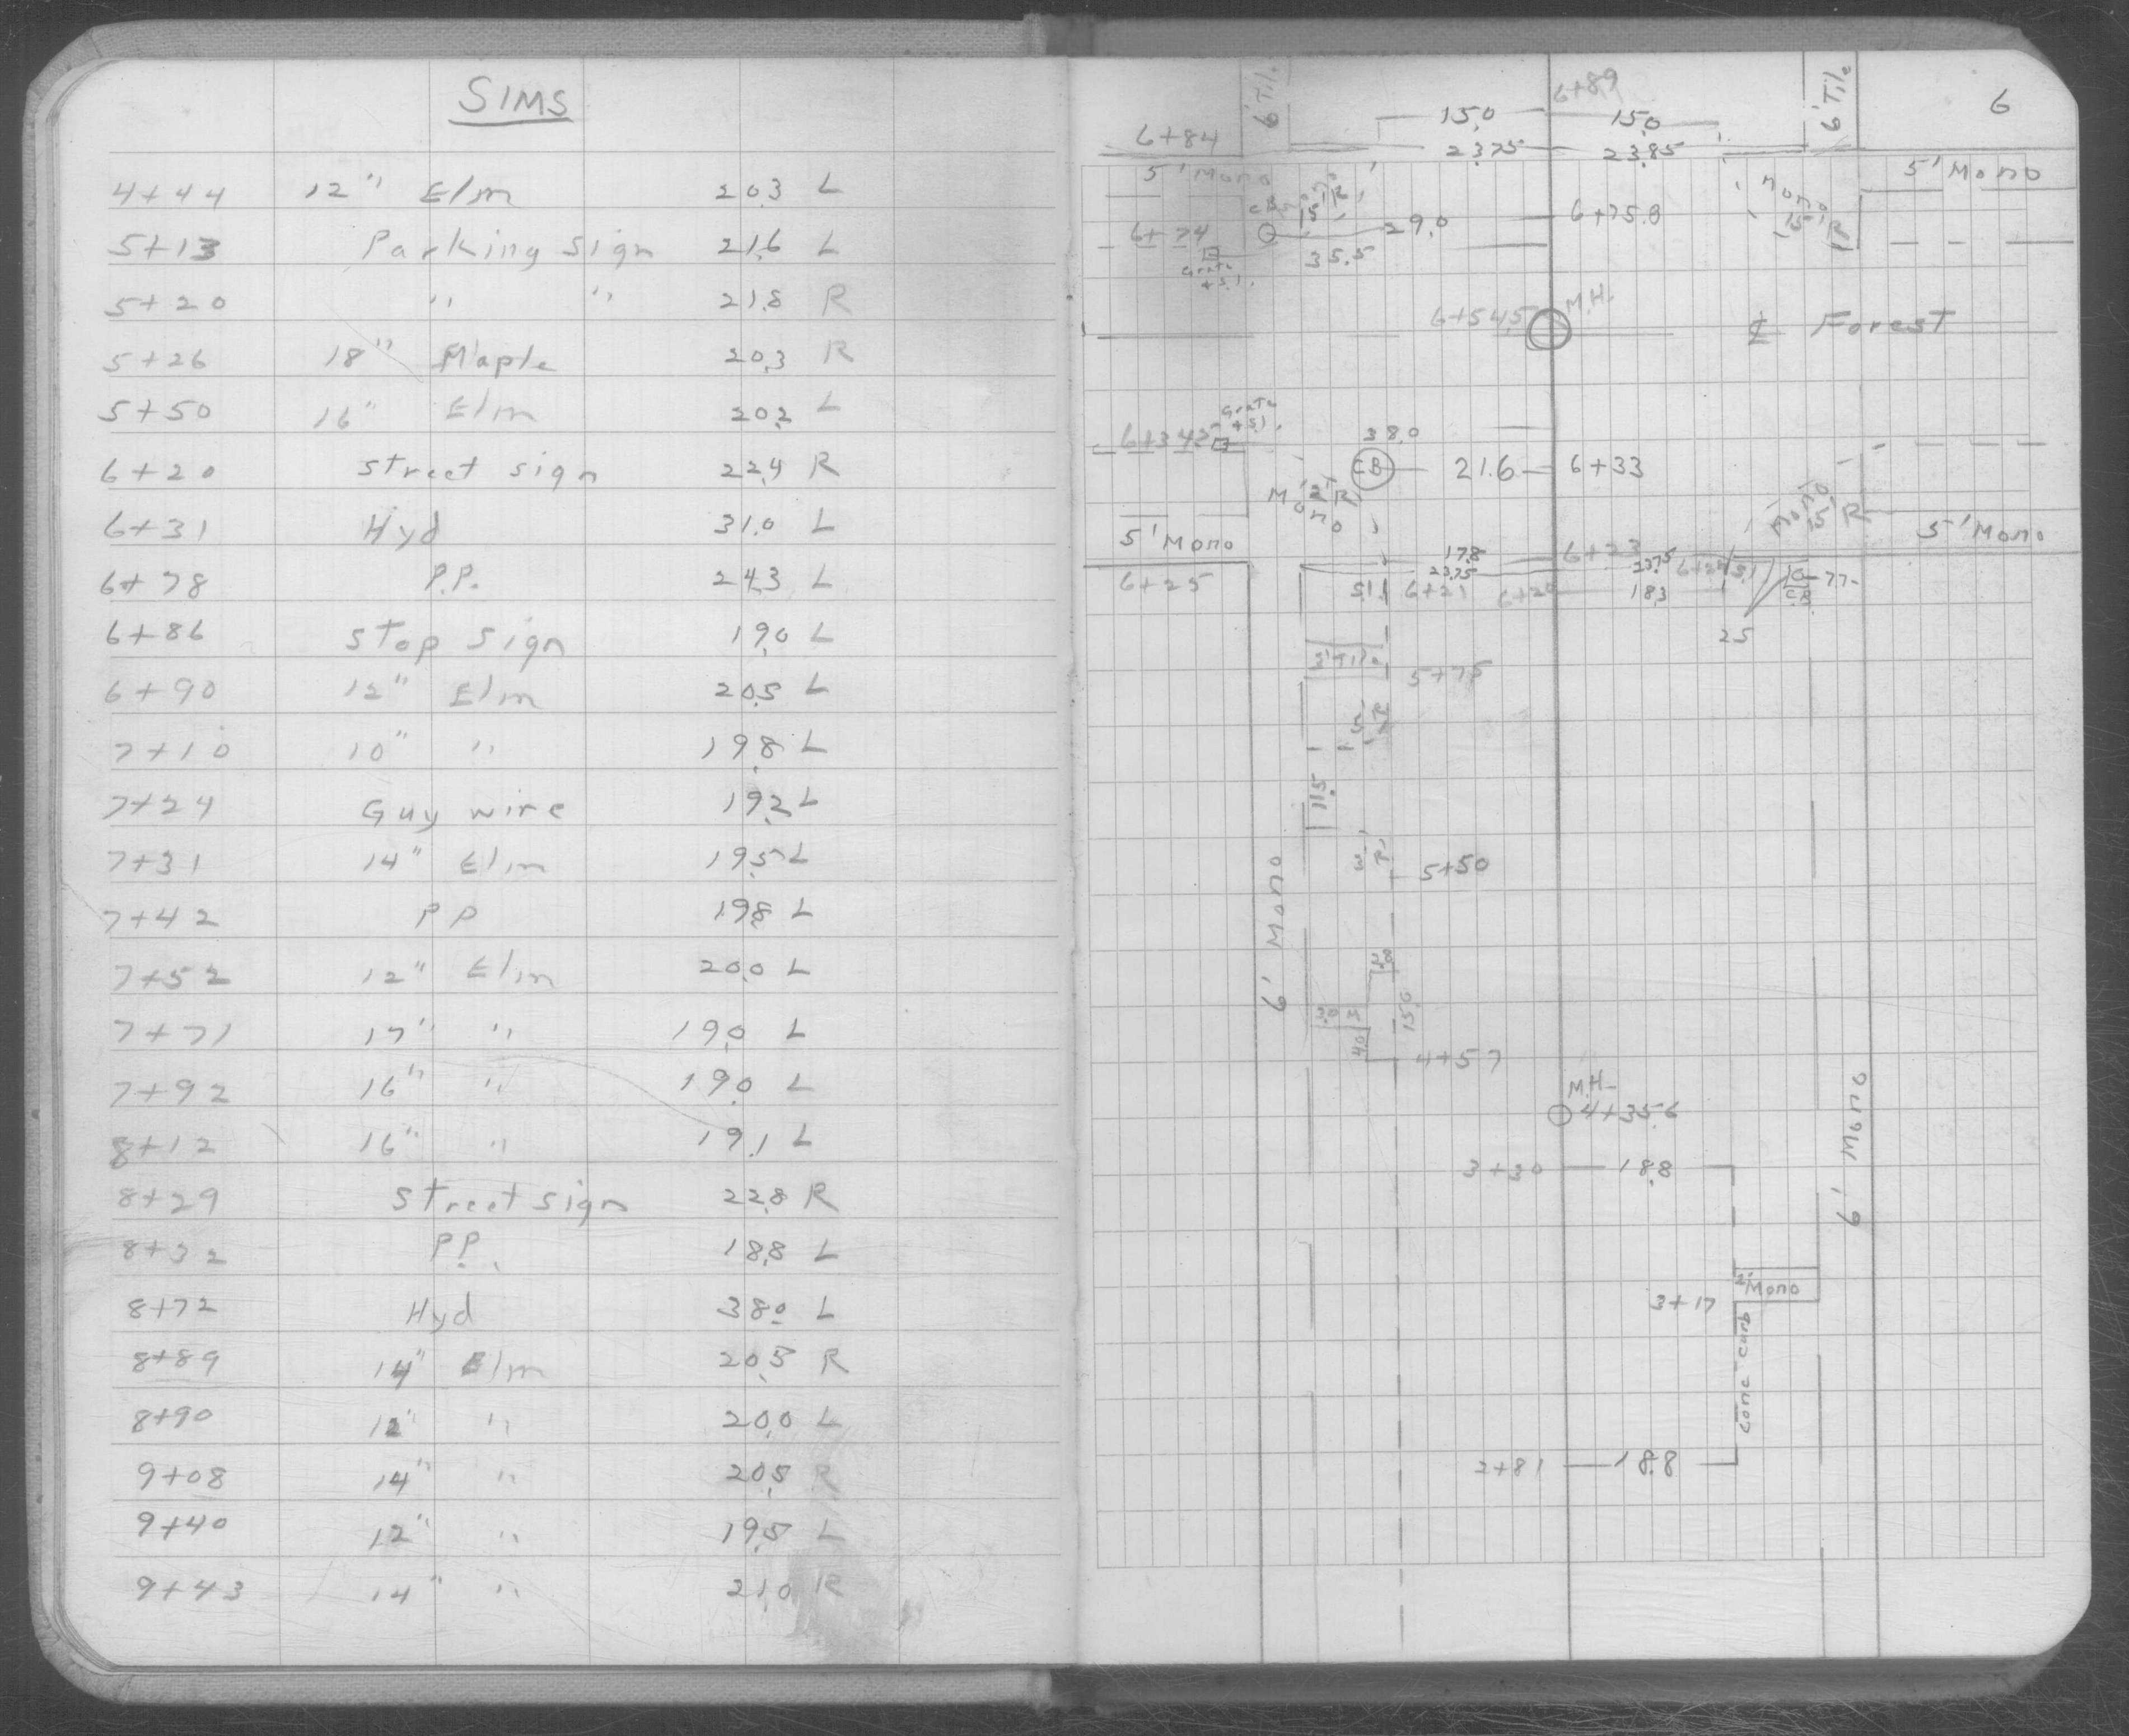 SIMS
4+44 12" Elm 20.3 L
5+13 Parking Sign 21.6 L
5+20 " " 21.8 R
5+26 18" Maple 20.3 R
5+50 16" Elm 20.2 L
6+20 street sign 22.4 R
6+31 Hyd 31.0 L
6+78 P.P. 24.3 L
6+86 Stop Sign 19.0 L
6+90 12" Elm 20.5 L
7+10 10" " 19.8 L
7+24 Guy wire 19.2 L
7+31 14" Elm 19.5 L
7+42 PP 19.8 L
7+52 12" Elm 20.0 L
7+71 17" " 19.0 L
7+92 16" " 19.0 L
8+12 16" " 19.1 L
8+29 Street sign 22.8 R
8+32 P.P. 18.8 L
8+72 Hyd 38.0 L
8+89 14" Elm 20.5 R
8+90 12" " 20.0 L
9+08 14" " 20.5 R
9+40 12" " 19.5 L
9+43 14" " 21.0 R
6
6' Tile 6+89 6' Tile
15.0 15.0
6+84 23.75 23.85
5' Mono 5' Mono
Mono 15' R Mono 15' R
CB 29.0 6+75.8
6+74 35.5
Grate + S.I.
6+54.5 M.H.
℄ Forest
Grate + S.I.
6+34.2 38.0
CB 21.6 6+33
Mono Mono 15' R
5' Mono 5' Mono
17.8 6+23
23.75 23.75
6+25 S.I. 6+21 18.3 S.I. C.B. 77
25
3' Tile 5+75
11.5
5+50
6' Mono
2.8
15.0
4.0 4+57
M.H.
4+35.6
6' Mono
3+30 18.8
2' Mono
3+17
conc curb
2+81 18.8